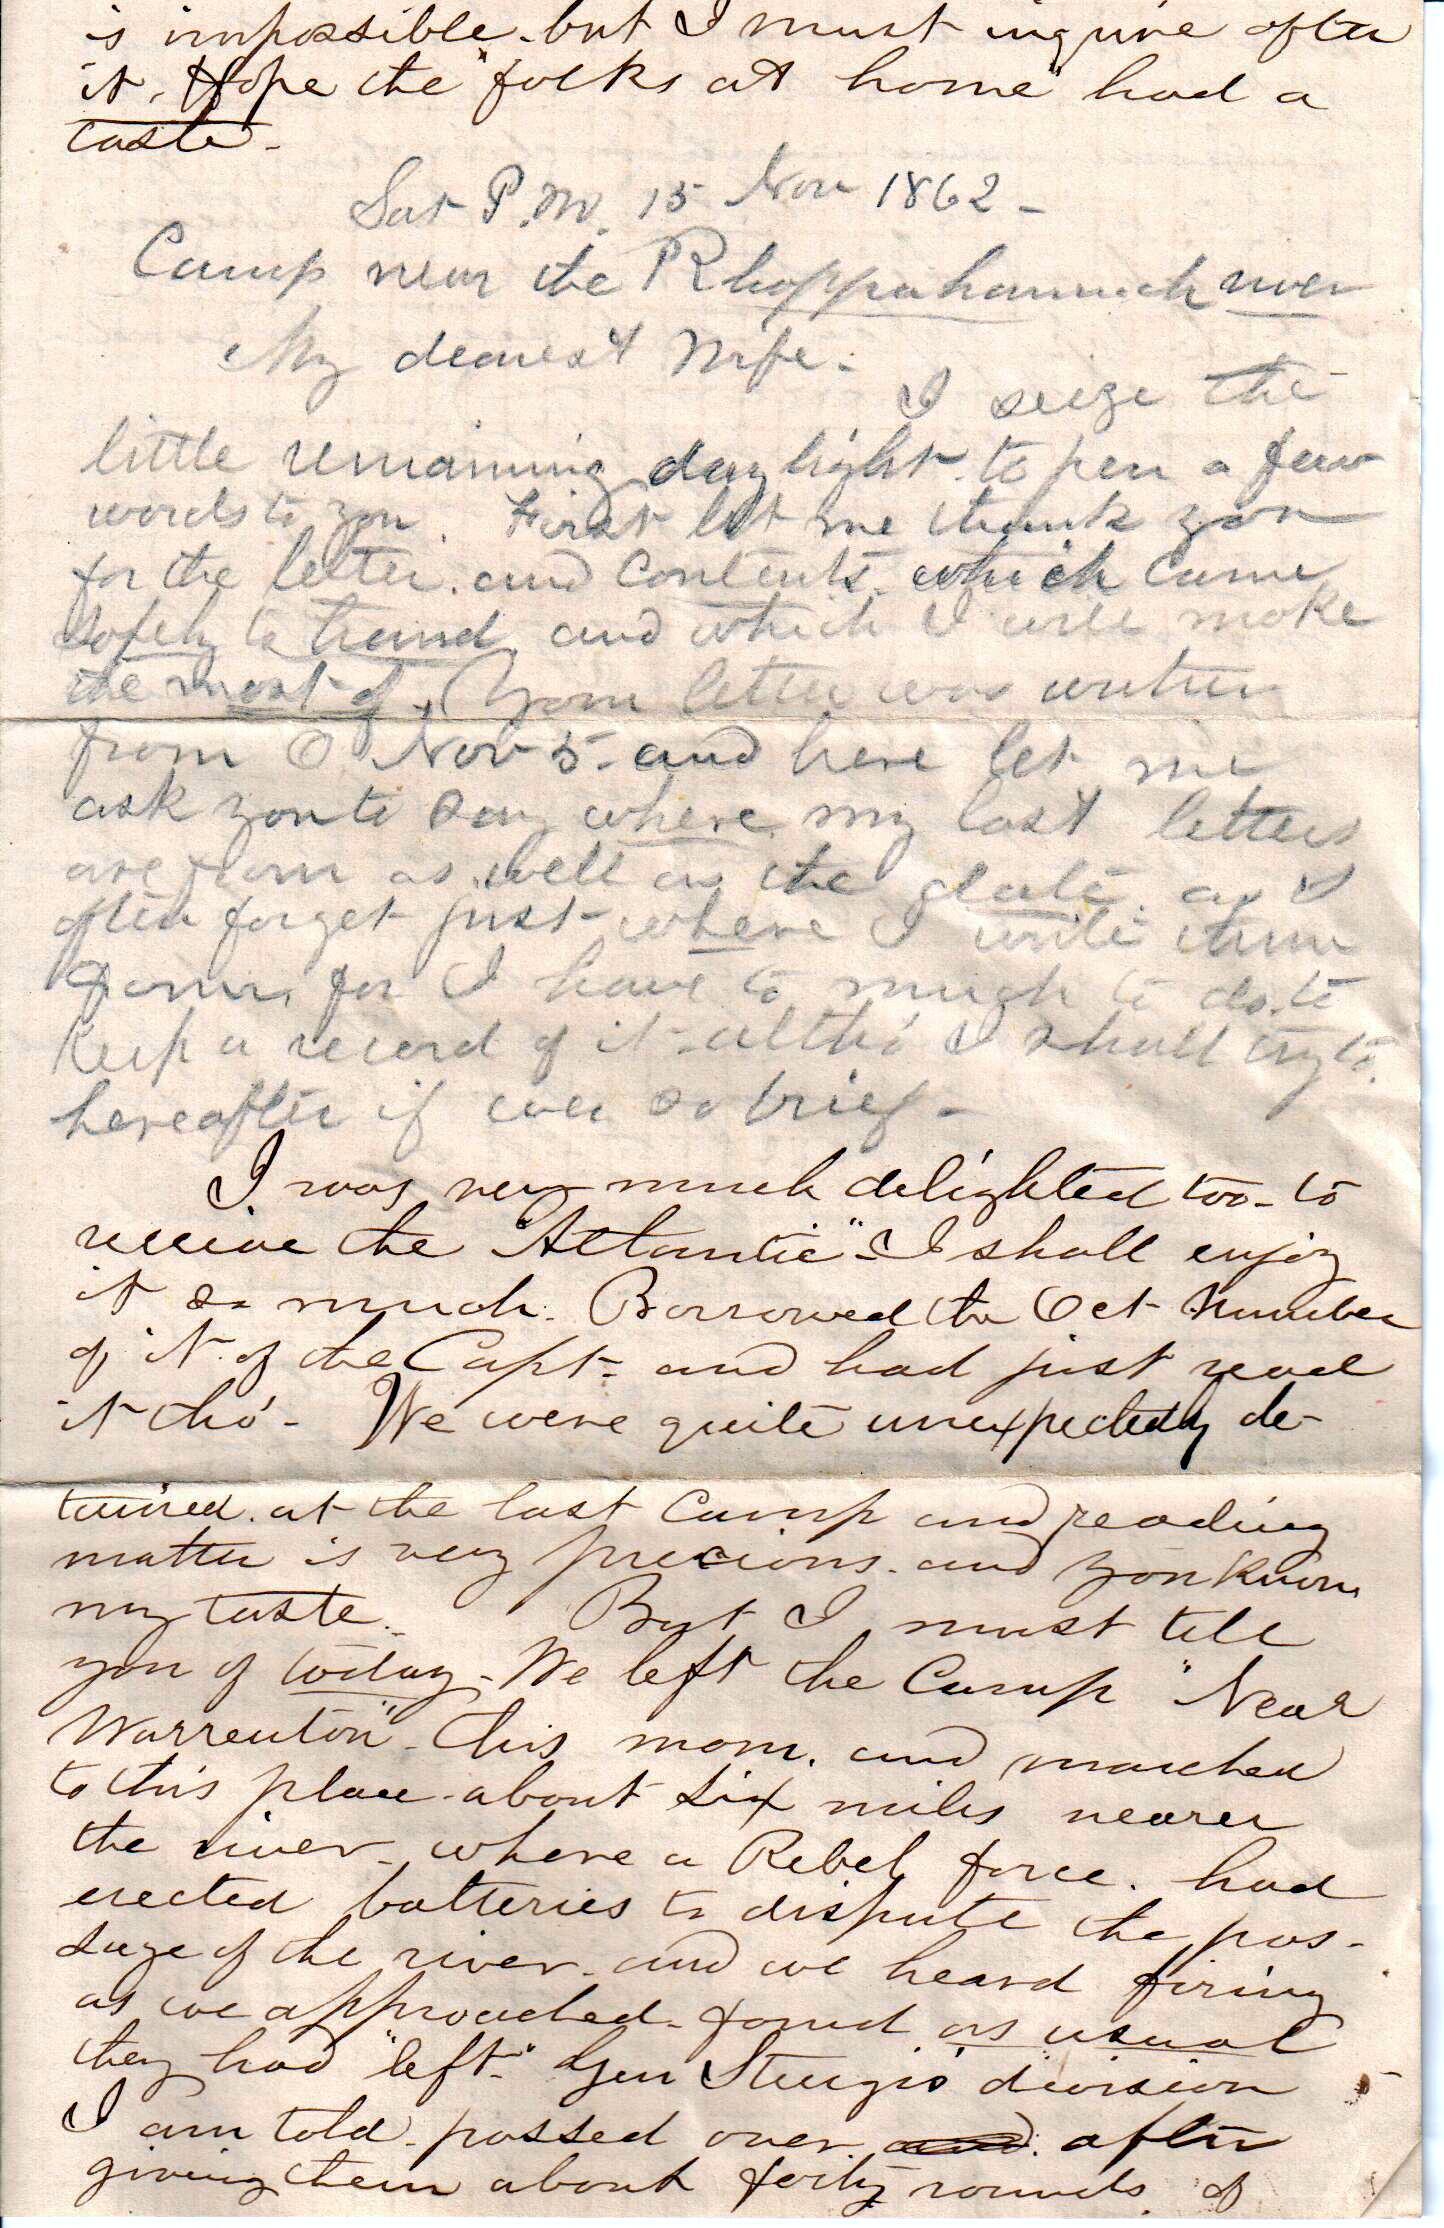 is impossible - but I must inquire after
it. Hope the "folks at home" had a
taste -
Sat P.M. 15 Nov 1862 -
Camp near the Rhappahannock river
My dearest Wife -
I seize the
little remaining daylight to pen a few
words to you. First let me thank you
for the letter and contents which came
safely to hand, and which I will make
the most of. Your letter was written
from O Nov 5 - and here let me
ask you to say where my last letters
are from as well as the date as I
often forget just where I write them
from, for I have to much to do to
keep a record of it - altho' I shall try to
hereafter if ever so brief -
I was very much delighted too - to
receive the "Atlantic" - I shall enjoy
it so much. Borrowed the Oct Number
of it of the Capt - and had just read
it tho' - We were quite unexpectedly de-
tained at the last Camp and reading
matter is very precious - and you know
my taste - But I must tell
you of today - We left the Camp "Near
Warrenton" - this morn. and marched
to this place - about six miles nearer
the river - where a Rebel force. had
erected batteries to dispute the pas-
sage of the river - and we heard firing
as we approached - found as usual
they had "left" - Gen Sturgis' division
I am told - passed over and after
giving them about forty rounds of